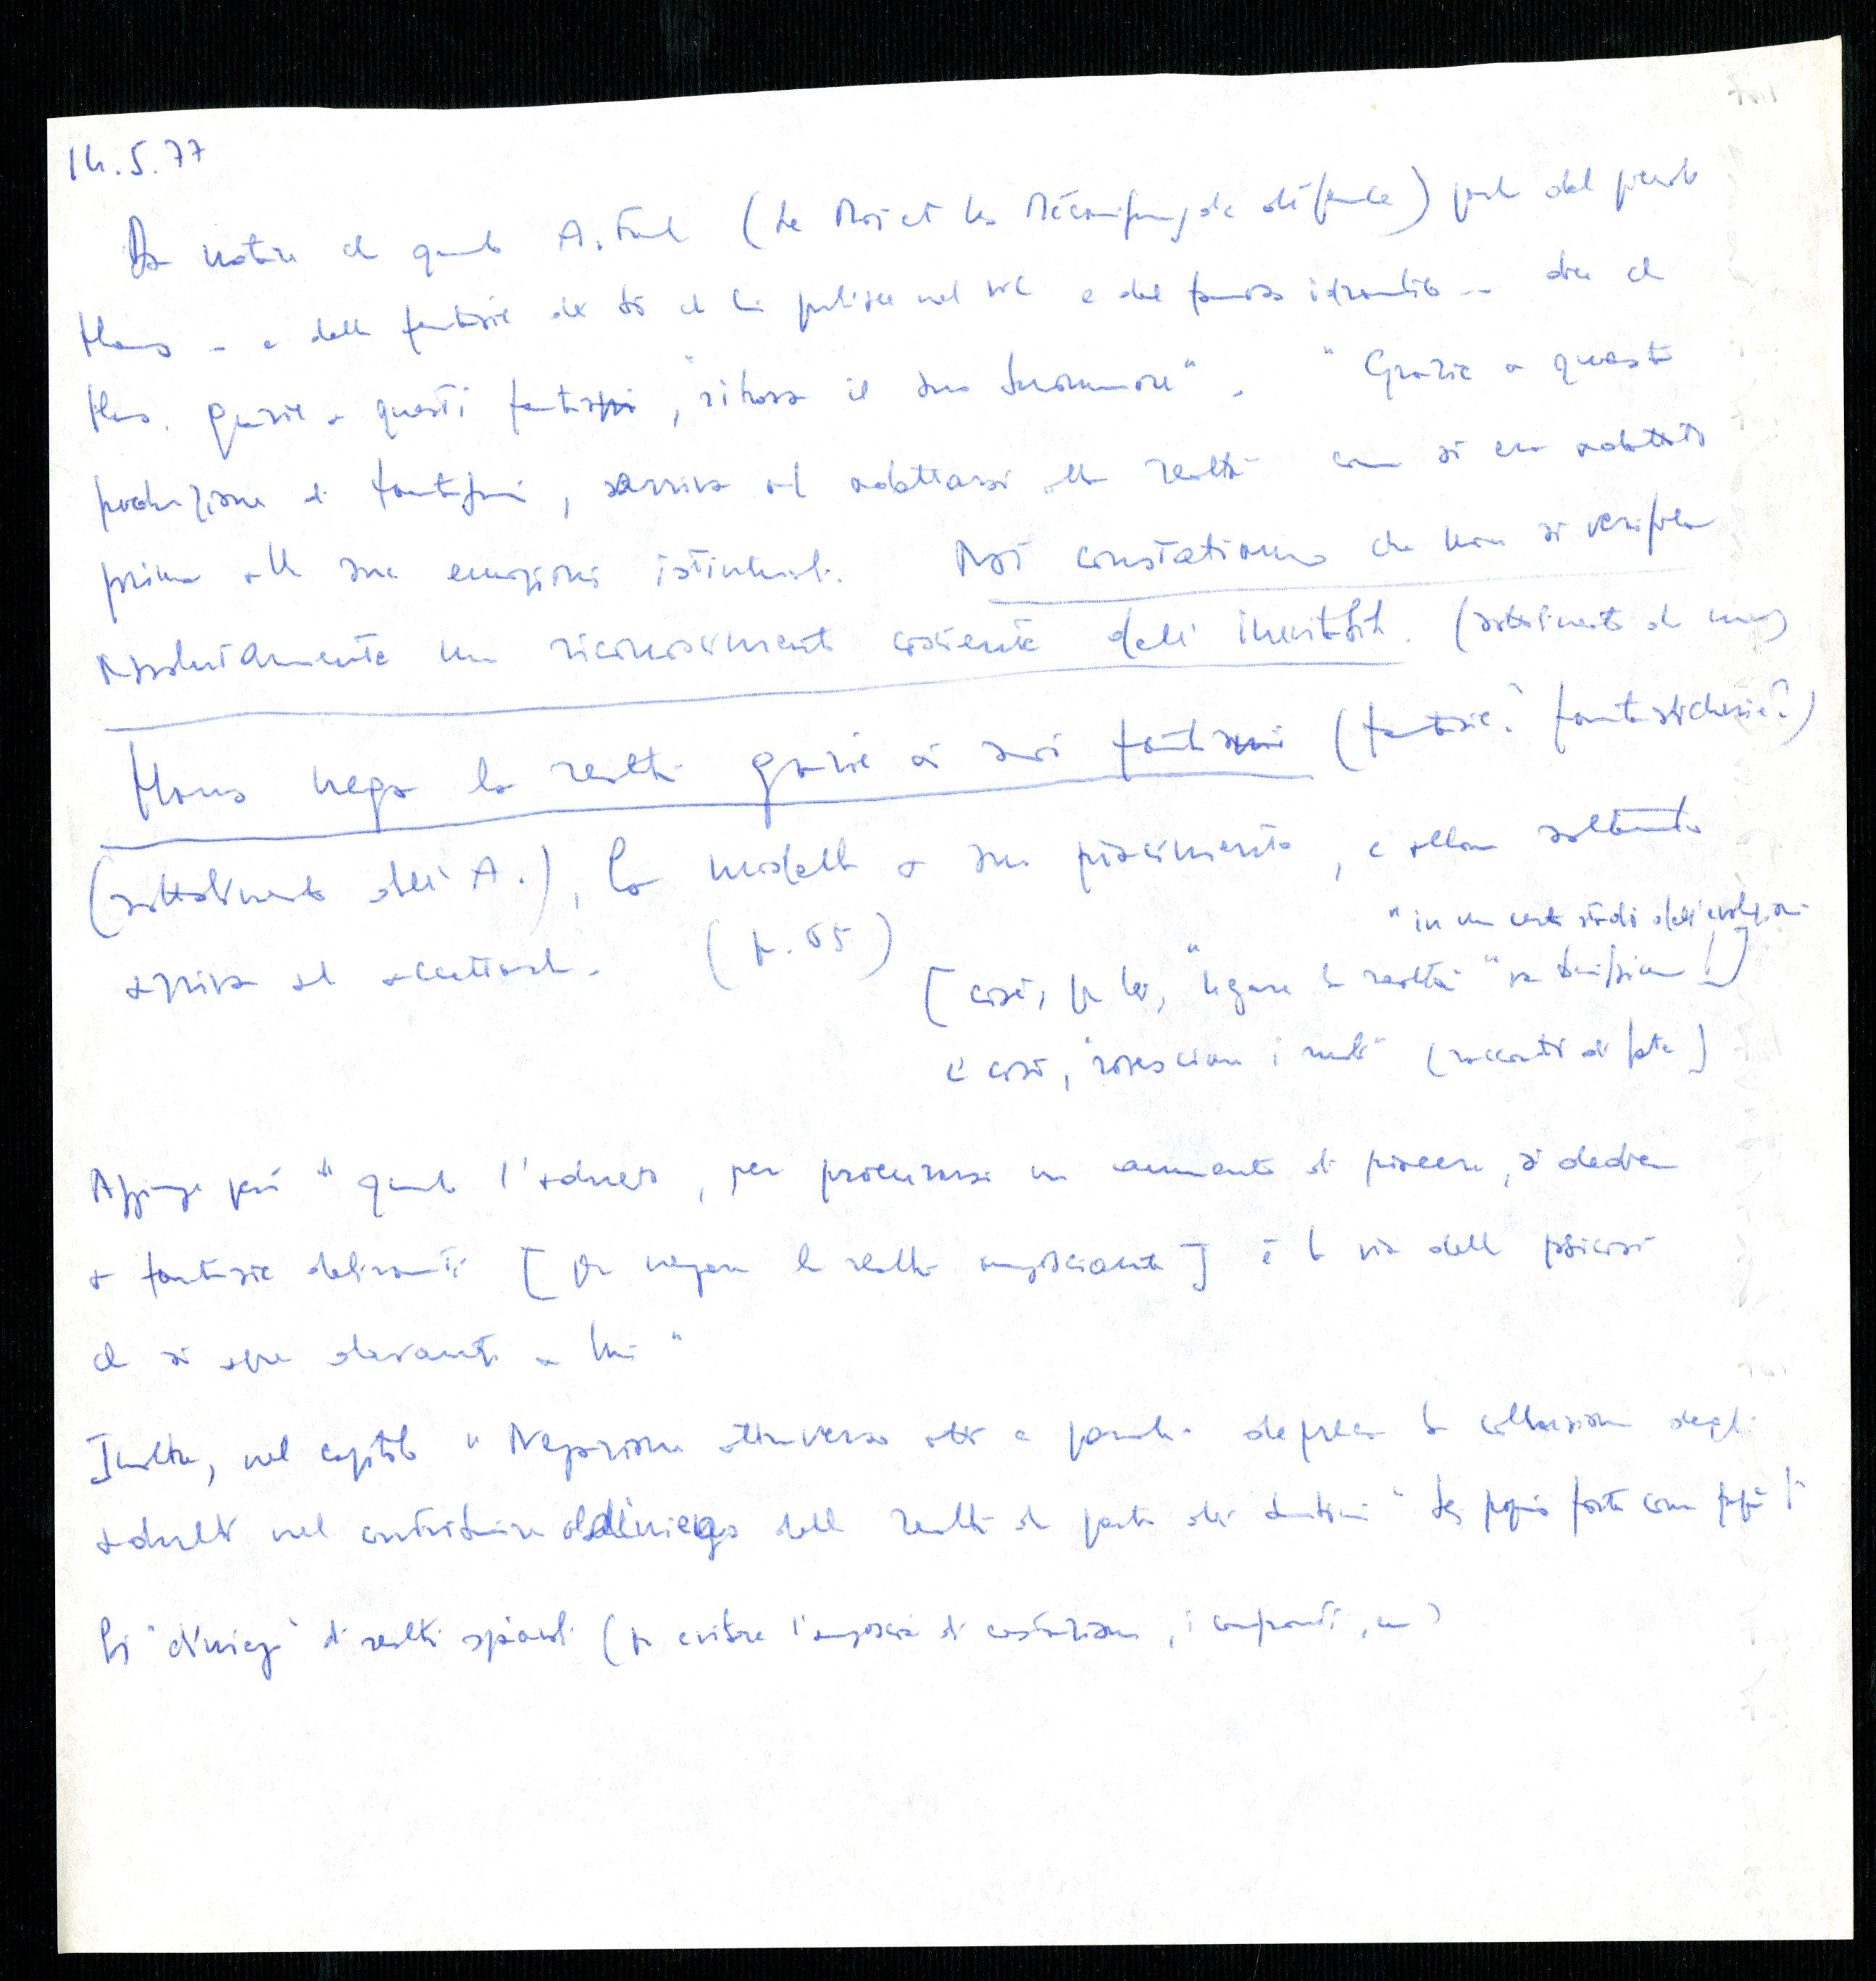 14.5.77
Da notare che quando A. Freud (Le Moi et les Mécanismes de défense) parla del piccolo
Hans - e delle fantasie di che lo pulisce nel wc e del famoso idraulico -- dice che
Hans. grazie a questi fantasmi, "ritrova il suo buonumore". "Grazie a questa
produzione di fantasmi, arriva ad adattarsi alla realtà come si era adattato
prima alle sue emozioni istintuali. Noi constatiamo che non si verifica
assolutamente un riconoscimento cosciente dell'inevitabile. (sottolineato da me)
Hans nega la realtà grazie ai suoi fantasmi (fantasie? fantasticherie?)
(sottolineato dell'A.), la modella a suo piacimento, e allora soltanto
arriva ad accettarla. (p. 65)
"in un certo stadio dell'evoluzione
[così, per lei, "negare la realtà" va benissimo!]
e così, "rovesciare i ruoli" (racconti di fate]
Aggiunge però "quando l'adulto, per procurarsi un aumento di piacere, si dedica
a fantasie deliranti [per negare la realtà angosciante] è la via della psicosi
che si apre davanti a lui"
Inoltre, nel capitolo "Negazione attraverso atti e parole" depreca la collusione degli
adulti nel condividere il diniego della realtà da parte dei bambini "Sei proprio forte come papà!"
"diniego" di realtà spiacevoli (per evitare l'angoscia di castrazione, i confronti, ecc)